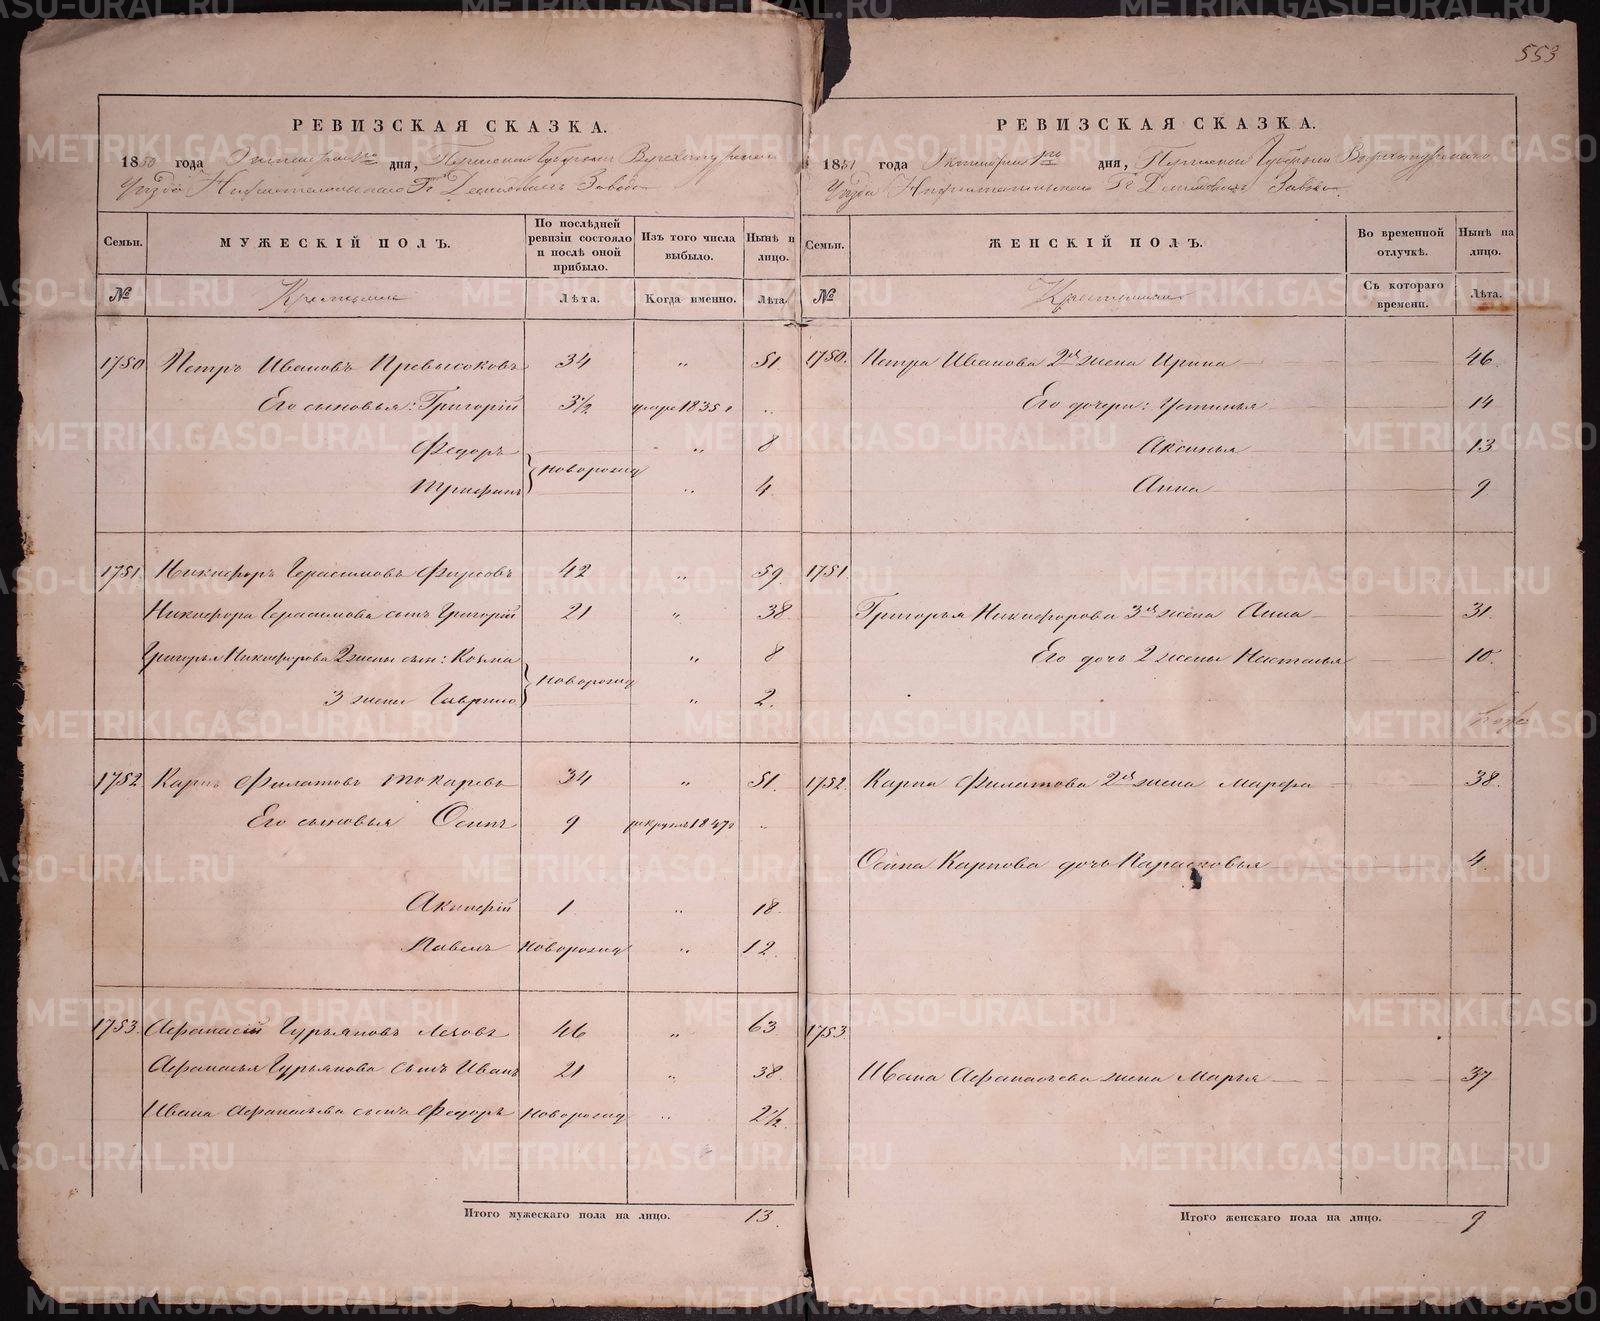 553
РЕВИЗСКАЯ СКАЗКА.
1850 года дня, Пермской Губернии Верхотурскаго
Уезда Нижнетагильскаго Гг Демидовыхъ Завода
Семьи. МУЖЕСКІЙ ПОЛЪ. По послѣдней ревизіи состояло и послѣ оной прибыло. Изъ того числа выбыло. Нынѣ на лицо.
№ Крестьяне Лѣта. Когда именно. Лѣта
1750 Петръ Ивановъ Превысоковъ 34 " 51.
Его сыновья: Григорій 3½ умре 1835 г "
Федоръ новорожд " 8
Трифанъ " 4
1751. Никифоръ Герасимовъ Фирсовъ 42 " 59.
Никифора Герасимова сынъ Григорій 21 " 38.
Григорья Никифорова 2 жены сын: Козма новорожд " 8
3 жены Гаврило " 2.
1752 Карпъ Филатовъ Токаревъ 34 " 51.
Его сыновья Осипъ 9 рекрутъ 1847г "
Акинфій 1 " 18.
Павелъ новорожд " 12.
1753. Афанасій Гурьяновъ Лезовъ 46 " 63
Афанасья Гурьянова сынъ Иванъ 21 " 38.
Ивана Афанасьева сынъ Федоръ новорожд " 2½
Итого мужескаго пола на лицо. 13.
РЕВИЗСКАЯ СКАЗКА.
1851 года дня, Пермской Губернии Верхотурскаго
Уезда Нижнетагильскаго Гг Демидовыхъ Завода.
Семьи. ЖЕНСКІЙ ПОЛЪ. Во временной отлучкѣ. Нынѣ на лицо.
№ Крестьяне Съ котораго времени. Лѣта.
1750. Петра Иванова 2я жена Ирина 46.
Его дочери: Устинья 14
Аксинья 13
Анна 9
1751.
Григорья Никифорова 3я жена Анна 31.
Его дочь 2 жены Настасья 10.
1752. Карпа Филатова 2я жена Марфа 38.
Осипа Карпова дочь Парасковья 4.
1753.
Ивана Афанасьева жена Марья 37
Итого женскаго пола на лицо. 9
METRIKI.GASO-URAL.RU